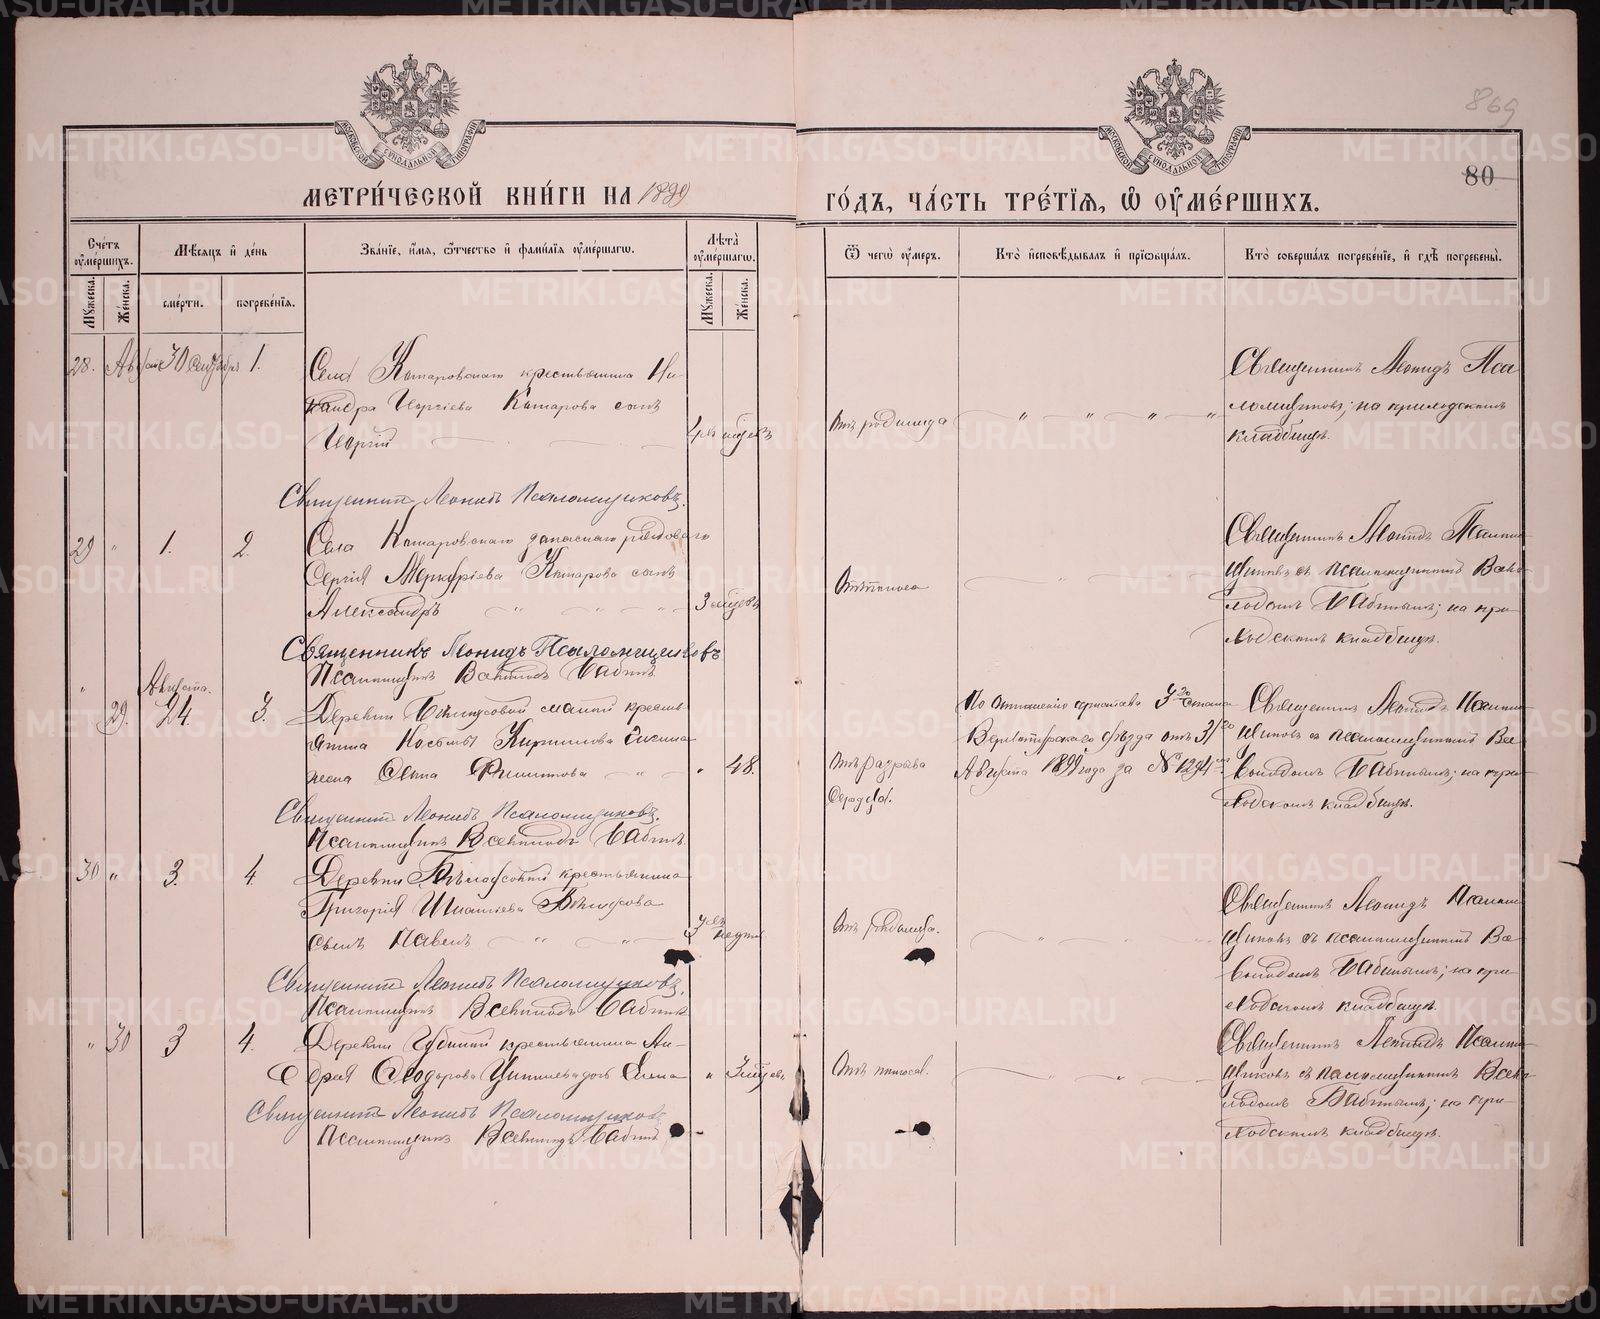 869
80
МОСКОВСКОЙ СУНОДАЛЬНОЙ ТИПОГРАФІИ
МОСКОВСКОЙ СУНОДАЛЬНОЙ ТИПОГРАФІИ
МЕТРИ́ЧЕСКОЙ КНИ́ГИ НА 1899
ГО́ДЪ, ЧА́СТЬ ТРЕ́ТІѦ, Ѽ ОУМЕ́РШИХЪ.
Сче́тъ оуме́ршихъ.
Мꙋжеска.
Же́нска.
Мѣ́сяцъ и҆ де́нь
сме́рти.
погребе́нїѧ.
Зва́нїе, и҆́мѧ, ѻ҆́тчество и҆ фами́лїѧ оуме́ршагѡ.
Лѣта̀ оуме́ршагѡ.
Мꙋжеска.
Же́нска.
Ѿ чегѡ̀ оу́меръ.
Кто̀ и҆сповѣ́дывалъ и҆ прїѡбща́лъ.
Кто̀ соверша́лъ погребе́нїе, и҆ гдѣ̀ погребены̀.
28. Августа 30 Сентября 1.
Села Комаровскаго крестьянина Ни-
кандра Комарова сынъ
Георгій
Отъ родимца
Священникъ Леонидъ Пса-
ломщиковъ; на приходскомъ
кладбищѣ.
Священникъ Леонидъ Псаломщиковъ.
29 " 1. 2.
Села Комаровскаго запаснаго рядоваго
Сергія Меркуріева Комарова сынъ
Александръ
3 мѣсяцевъ
Отъ поноса
Священникъ Леонидъ Псалом-
щиковъ съ псаломщикомъ
Бабинымъ; на при-
ходскомъ кладбищѣ.
Священникъ Леонидъ Псаломщиковъ
Псаломщикъ Бабинъ
" 29. Августа 24. 3.
Деревни крестья-
нина Кирилова
жена Филиппова
" 48.
Отъ разрыва
сердца.
По отношенію пристава 3го стана
Верхотурскаго уѣзда отъ 31го
Августа 1899 года за № 1294
Священникъ Леонидъ Псалом-
щиковъ съ псаломщикомъ Все-
володомъ Бабинымъ; на при-
ходскомъ кладбищѣ.
Священникъ Леонидъ Псаломщиковъ.
Псаломщикъ Всеволодъ Бабинъ.
30 " 3. 4.
Деревни крестьянина
Григорія Игнатіева Бѣлоусова
сынъ Павелъ
3 недѣль
Отъ родимца.
Священникъ Леонидъ Псалом-
щиковъ съ псаломщикомъ Все-
володомъ Бабинымъ; на при-
ходскомъ кладбищѣ.
Священникъ Леонидъ Псаломщиковъ.
Псаломщикъ Всеволодъ Бабинъ
" 30 3 4.
Деревни крестьянина Ан-
дрея Ѳеодорова дочь
" 3 мѣсяцевъ
Отъ поноса.
Священникъ Леонидъ Псалом-
щиковъ съ псаломщикомъ Всево-
лодомъ Бабинымъ; на при-
ходскомъ кладбищѣ.
Священникъ Леонидъ Псаломщиковъ
Псаломщикъ Всеволодъ Бабинъ
METRIKI.GASO-URAL.RU